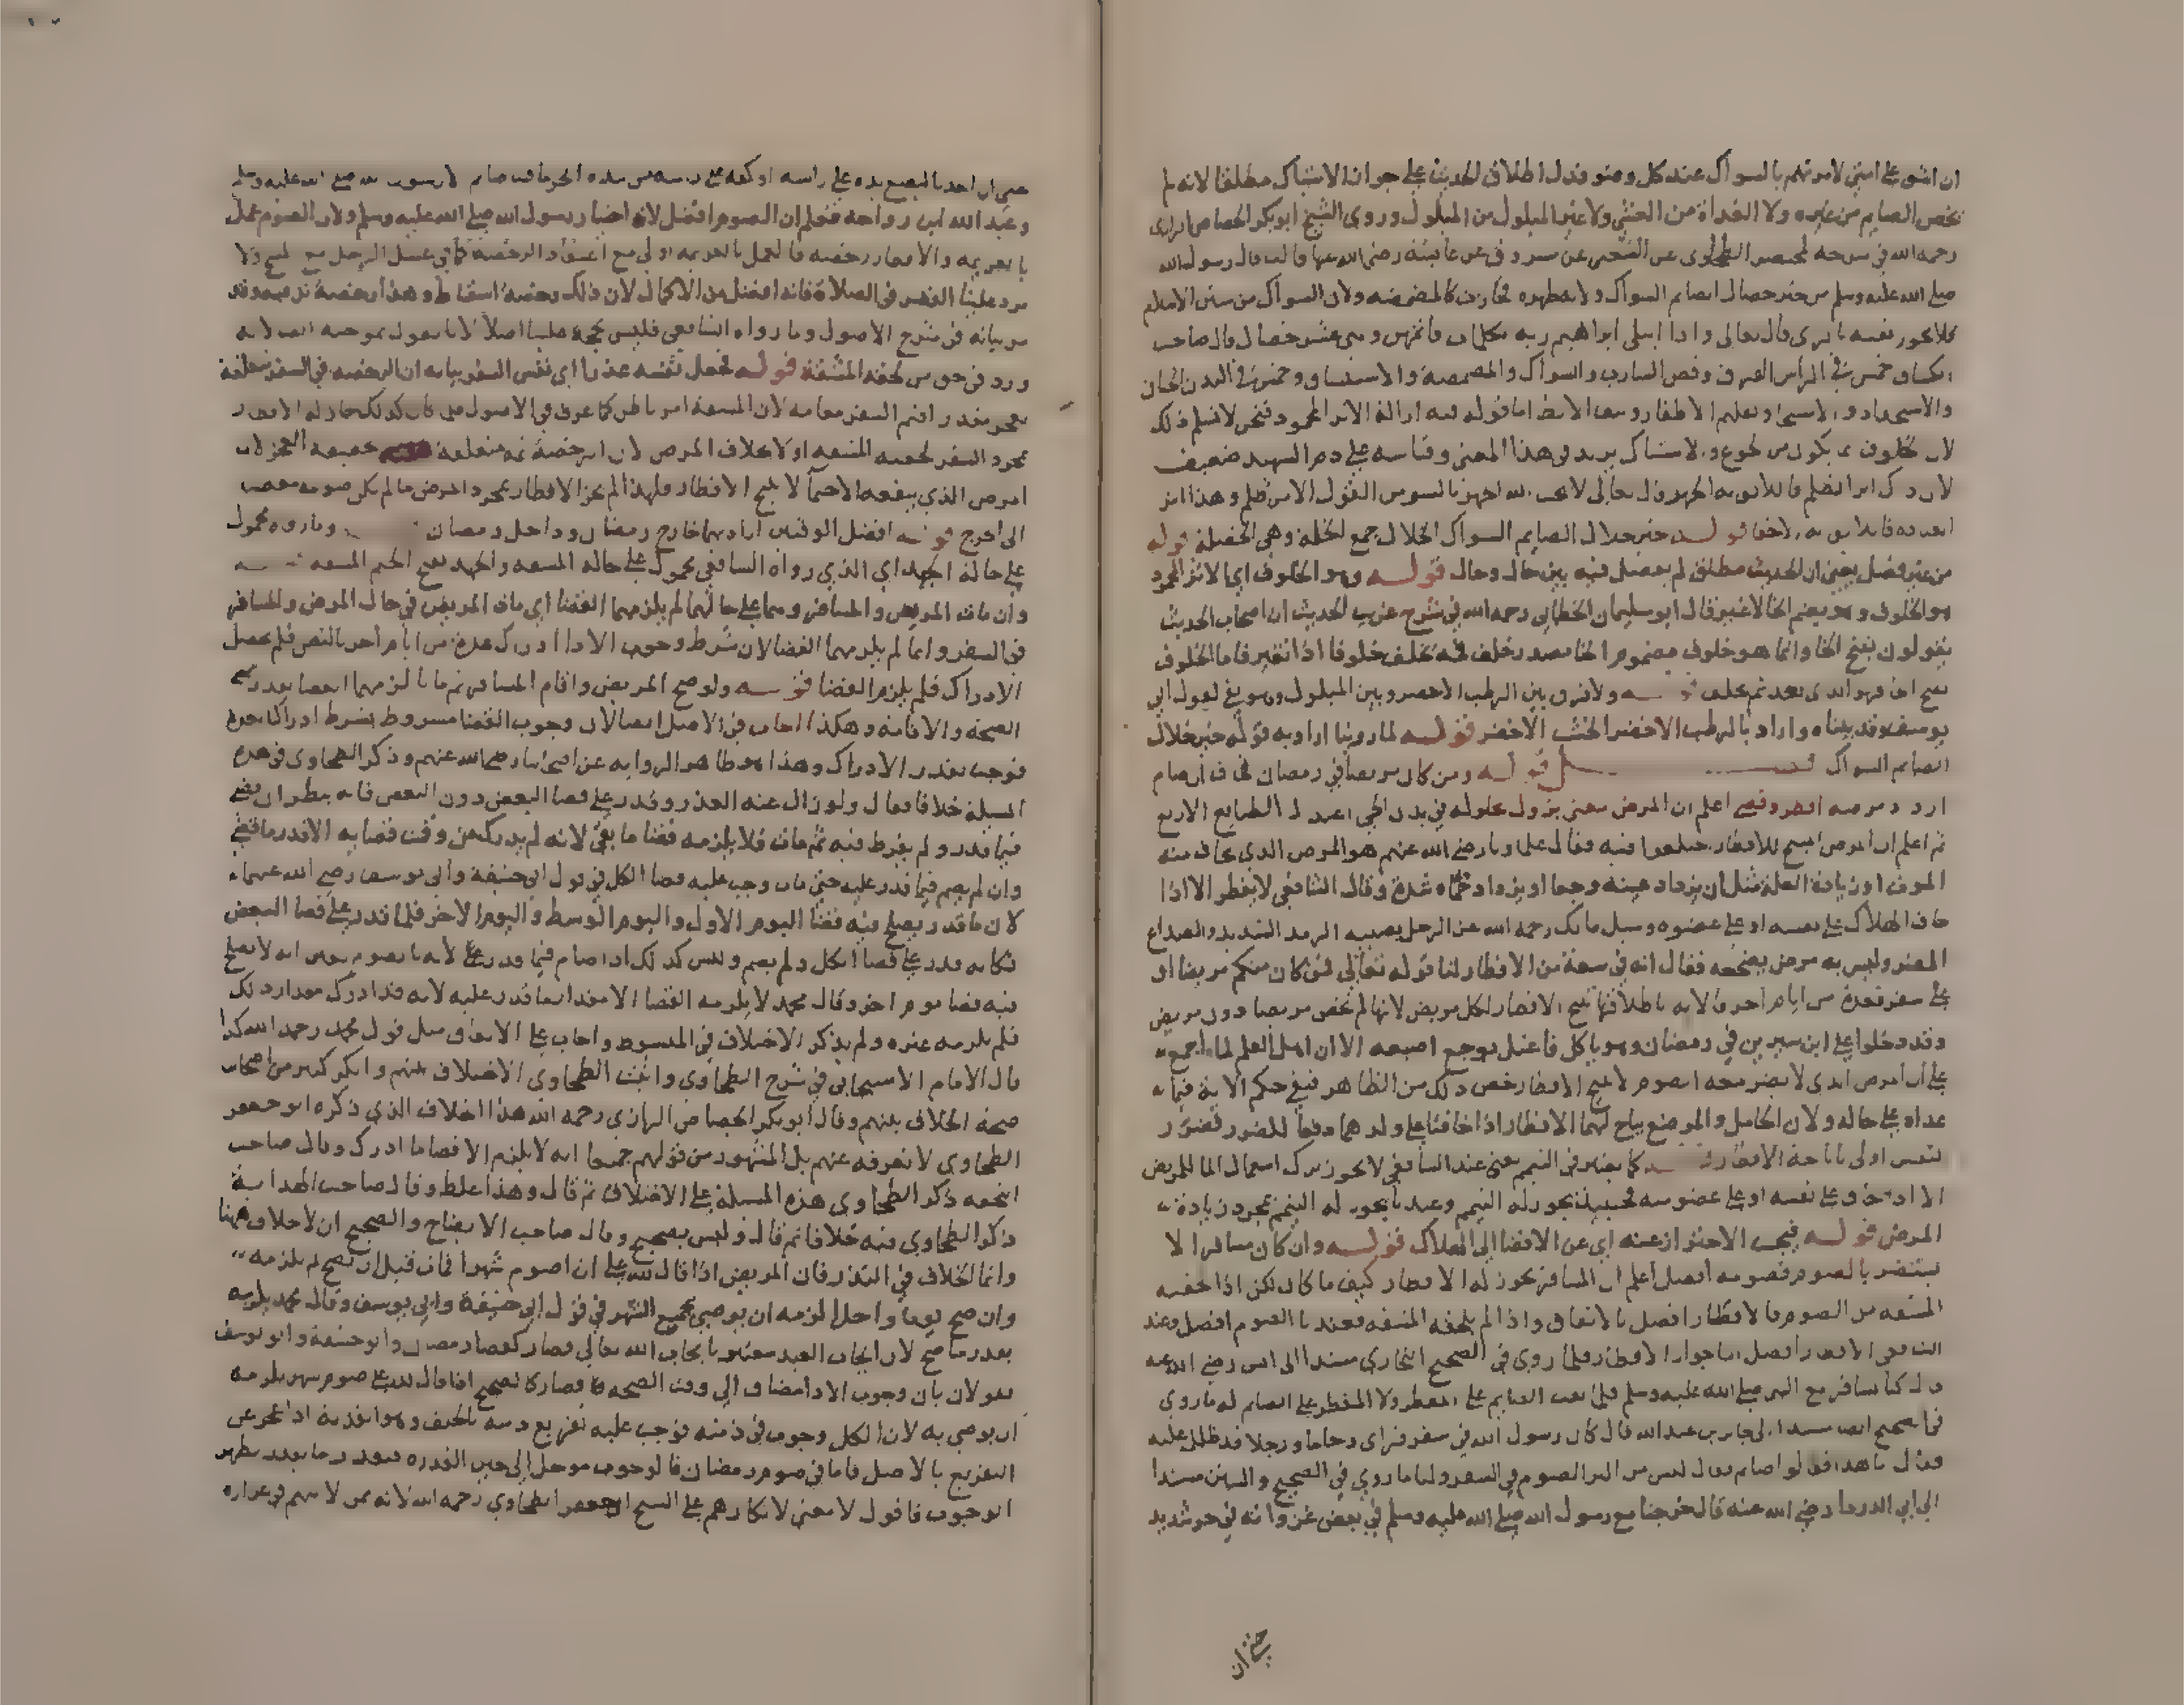 ان اشق على امتي لامرتهم بالسواك عند كل وضوء فدل اطلاق الحديث على جواز الاستياك مطلقا لانه لم
يخص الصايم من غيره ولا الغداة من العشي ولا غير المبلول من المبلول وروى الشيخ ابو بكر الجصاص الرازي
رحمه الله في شرحه لمختصر الطحاوي عن الشعبي عن مسروق عن عايشة رضي الله عنها قالت قال رسول الله
صلى الله عليه وسلم من خير خصال الصايم السواك ولانه طهره كالمضمضه ولان السواك من سنن الاسلام
قال تعالى واذا ابتلى ابراهيم ربه بكلمات فاتمهن وهي عشر خصال قال صاحب
خمس في الراس الفرق وقص الشارب والسواك والمضمضة والاستنشاق وخمس في البدن الختان
والاستحداد والاستنجا وتقليم الاظفار ونتف الابط اما قوله فيه ازالة الاثر المحمود فنحن لا نسلم ذلك
لان الخلوف يكون من الجوع والاستياك يزيد في هذا المعنى وقياسه على دم الشهيد ضعيف
لان ذاك اثر الظلم قال تعالى لا يحب الله الجهر بالسوء من القول الا من ظلم وهذا اثر
العبادة فاللايق به الاخفا قوله خير خلال الصايم السواك الخلال جمع الخلة وهي الخصلة قوله
من غير فصل يعني ان الحديث مطلق لم يفصل فيه بين حال وحال قوله وهو الخلوف اي الاثر المحمود
هو الخلوف وهو بضم الخا لا غير قال ابو سليمان الخطابي رحمه الله في شرح غريب الحديث ان اصحاب الحديث
يقولون بفتح الخا وانما هو خلوف مضموم الخا مصدر خلف فمه يخلف خلوفا اذا تغير فاما الخلوف
بفتح الخا فهو الذي يعد ثم يخلف قوله ولا فرق بين الرطب الاخضر وبين المبلول وهو نفي لقول ابي
يوسف وقد بيناه واراد بالرطب الاخضر الخشب الاخضر قوله لما روينا اراد به قوله خير خلال
الصايم السواك فصل قوله ومن كان مريضا في رمضان فخاف ان صام
ازداد مرضه افطر وقضى اعلم ان المرض معنى يزول بحلوله في بدن الحي اعتدال الطبايع الاربع
ثم اعلم ان المرض المبيح للافطار اختلفوا فيه فقال علماونا رضي الله عنهم هو المرض الذي يخاف منه
الموت او زيادة العلة مثل ان يزداد عينه وجعا او يزداد حماه شدة وقال الشافعي لا يفطر الا اذا
خاف الهلاك على نفسه او على عضوه وسيل مالك رحمه الله عن الرجل يصيبه الرمد الشديد والصداع
المضر وليس به مرض يضجعه فقال انه في سعة من الافطار لنا قوله تعالى فمن كان منكم مريضا او
على سفر فعدة من ايام اخر فالاية باطلاقها تبيح الافطار لكل مريض لانها لم تخص مريضا دون مريض
وقد دخلوا على ابن سيرين في رمضان وهو ياكل فاعتل بوجع اصبعه الا ان اهل العلم لما اجمع
على ان المرض الذي لا يضر معه الصوم لا يبيح الافطار خص ذلك من الظاهر فبقي حكم الاية فيما
عداه على حاله ولان الحامل والمرضع يباح لهما الافطار اذا خافتا على ولدهما دفعا للضرر فضرر
النفس اولى باباحة الافطار قوله كما يعتبر في التيمم يعني عند الشافعي لا يجوز ترك استعمال الما للمريض
الا اذا خاف على نفسه او على عضو منه فحينئذ يجوز له التيمم وعندنا يجوز له التيمم بمجرد زيادة
المرض قوله فيجب الاحتراز عنه اي عن الافضا الى الهلاك قوله وان كان مسافرا لا
يستضر بالصوم فصومه افضل اعلم ان المسافر يجوز له الافطار كيف ما كان لكن اذا لحقته
المشقه من الصوم فالافطار افضل بالاتفاق واذا لم يلحقه المشقه فعندنا الصوم افضل وعند
الشافعي الافطار افضل اما جواز الافطار فلما روي في الصحيح البخاري مسندا الى انس رضي الله عنه
قال كنا نسافر مع النبي صلى الله عليه وسلم فلم يعب الصايم على المفطر ولا المفطر على الصايم له ما روي
في الصحيح ايضا مسندا الى جابر بن عبد الله قال كان رسول الله في سفر فراى زحاما ورجلا قد ظلل عليه
فقال ما هذا قالوا صايم فقال ليس من البر الصوم في السفر ولنا ما روي في الصحيح والسنن مسندا
الى ابي الدرداء رضي الله عنه قال خرجنا مع رسول الله صلى الله عليه وسلم في بعض غزواته في حر شديد
حتى ان
حتى ان احدنا ليضع يده على راسه او كفه على راسه من شدة الحر ما فينا صايم الا رسول الله صلى الله عليه وسلم
وعبد الله ابن رواحة فعلم ان الصوم افضل لانه اختيار رسول الله صلى الله عليه وسلم ولان الصوم عمل
بالعزيمه والافطار رخصه فالعمل بالعزيمه اولى مع اعتقاد الرخصة كما في غسل الرجل مع المسح ولا
يرد علينا القصر في الصلاة فانه افضل من الاكمال لان ذلك رخصة اسقاط وهذا رخصة ترفيه وقد
مر بيانه في شرح الاصول وما رواه الشافعي فليس بحجة علينا اصلا لانا نقول بموجبه ايضا لانه
ورد في حق من لحقته المشقة قوله فجعل نفسه عذرا اي نفس السفر بيانه ان الرخصه في السفر متعلقة
بعجز مقدر اقيم السفر مقامه لان المشقة امر باطن كما عرف في الاصول فلما كان كذلك جاز له الافطار
بمجرد السفر لحقته المشقه او لا بخلاف المرض لان الرخصة ثمه متعلقة بحقيقة العجز لان
المرض الذي ينفعه الاحتما لا يبيح الافطار ولهذا لم يجز الافطار بمجرد المرض ما لم يكن صومه مفضيا
الى الحرج قوله افضل الوقتين اراد بهما خارج رمضان وداخل رمضان وما رواه محمول
على حالة الجهد اي الذي رواه الشافعي محمول على حالة المشقه والجهد بفتح الجيم المشقه قوله
وان مات المريض والمسافر وهما على حالهما لم يلزمهما القضا اي مات المريض في حال المرض والمسافر
في السفر وانما لم يلزمهما القضا لان شرط وجوب الادا ادراك عدة من ايام اخر بالنص فلم يحصل
الادراك فلم يلزم القضا قوله ولو صح المريض واقام المسافر ثم ماتا لزمهما القضا بقدر
الصحة والاقامة وهكذا الجواب في الاصل ايضا لان وجوب القضا مشروط بشرط ادراك العدة
فوجب بقدر الادراك وهذا هو ظاهر الروايه عن اصحابنا رضي الله عنهم وذكر الطحاوي في هذه
المسيلة خلافا فقال ولو زال عنه العذر وقدر على قضا البعض دون البعض فانه ينظر ان قضى
فيما قدر ولم يفرط فيه ثم مات فلا يلزمه قضا ما بقي لانه لم يدرك من وقت قضايه الا قدر ما قضى
وان لم يصم فيما قدر عليه حتى مات وجب عليه قضا الكل في قول ابي حنيفة وابي يوسف رضي الله عنهما
لان ما قدر يصلح فيه قضا اليوم الاول واليوم الوسط واليوم الاخر فلما قدر على قضا البعض
فكانه قدر على قضا الكل ولم يصم وليس كذلك اذا صام فيما قدر عليه لانه بالصوم تعين انه لا يصلح
فيه قضا يوم اخر وقال محمد لا يلزمه القضا الا مقدار ما قدر عليه لانه قد ادرك مقدار ذلك
فلم يلزمه غيره ولم يذكر الاختلاف في المبسوط واجاب على الاتفاق مثل قول محمد رحمه الله كذا
قال الامام الاسبيجابي في شرح الطحاوي واثبت الطحاوي الاختلاف بينهم وانكر كثير من اصحابنا
صحة الخلاف بينهم وقال ابو بكر الجصاص الرازي رحمه الله هذا الخلاف الذي ذكره ابو جعفر
الطحاوي لا نعرفه عنهم بل المشهور من قولهم جميعا انه لا يلزم الا قضا ما ادرك وقال صاحب
التحفه ذكر الطحاوي هذه المسيلة على الاختلاف ثم قال وهذا غلط وقال صاحب الهداية
ذكر الطحاوي فيه خلافا ثم قال وليس بصحيح وقال صاحب الايضاح والصحيح ان لا خلاف ههنا
وانما الخلاف في النذر فان المريض اذا قال لله علي ان اصوم شهرا فمات قبل ان يصح لم يلزمه
وان صح يوما واحدا لزمه ان يوصي بجميع الشهر في قول ابي حنيفة وابي يوسف وقال محمد يلزمه
بقدر ما صح لان ايجاب العبد معتبر بايجاب الله تعالى فصار كقضا رمضان وابو حنيفة وابو يوسف
يقولان بان وجوب الادا مضاف الى وقت الصحه فصار كالصحيح اذا قال لله علي صوم شهر يلزمه
ان يوصي به لان الكل وجب في ذمته فوجب عليه تفريغ ذمته بالخلف وهو الفدية اذا عجز عن
التفريغ بالاصل فاما في صوم رمضان فالوجوب موجل الى حين القدره فبقدر ما يقدر يظهر
الوجوب فاقول لا معنى لانكارهم على الشيخ ابي جعفر الطحاوي رحمه الله لانه ممن لا يتهم في غزاره